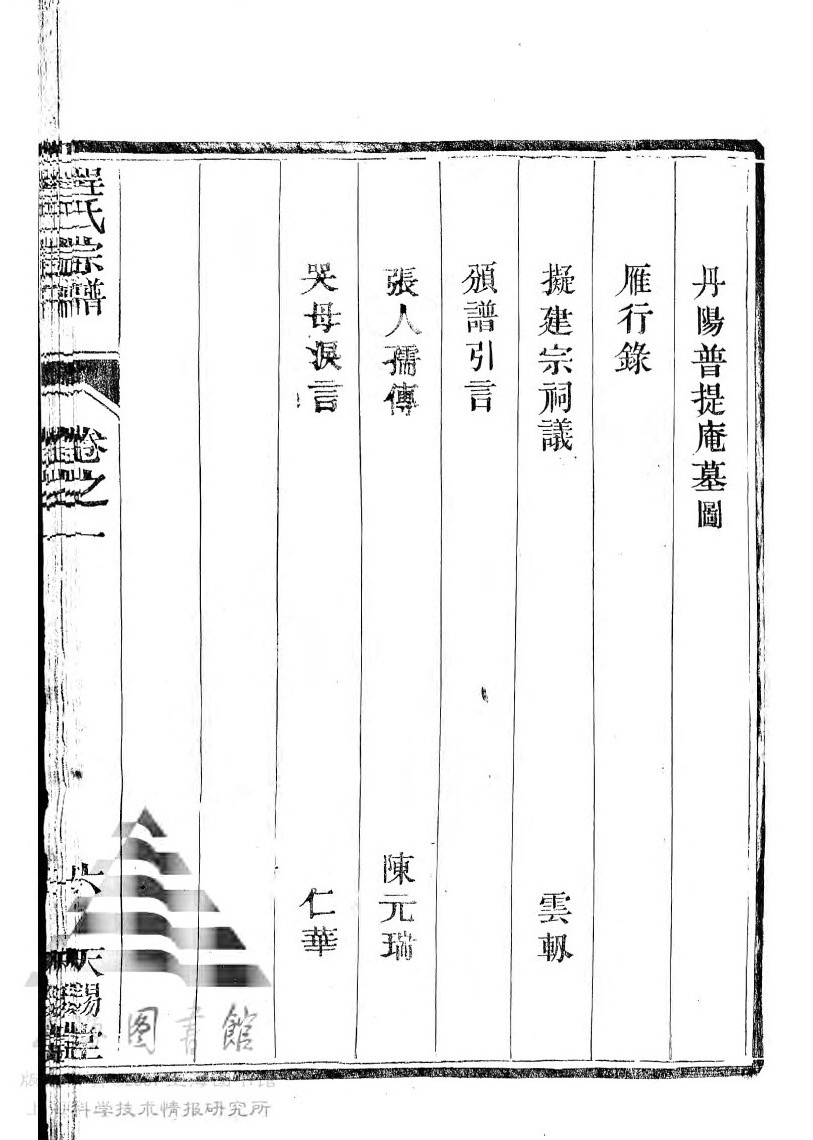 丹陽普提庵墓圖
雁行錄
擬建宗祠議 雲軔
頒譜引言
張人孺傳 陳元瑞
哭母淚言 仁華
程氏宗譜 卷之一 六 天錫堂
圖書館
科学技术情报研究所